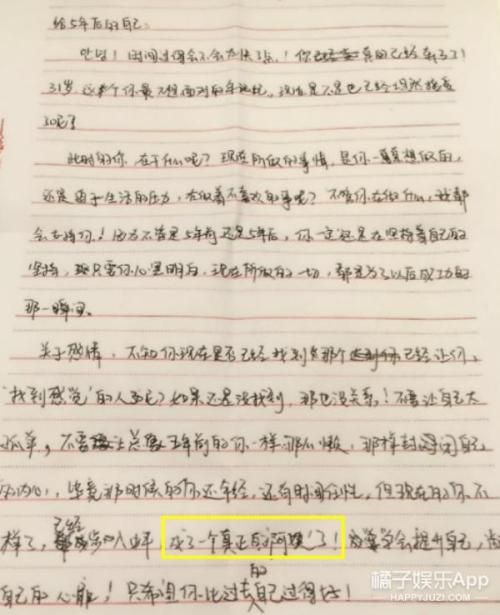 给5年后的自己:
你！时间过得会不会太快了点！你已经真的已经奔3了！
31岁，这个你最不想面对的年龄，现在是不是也已经坦然接受
了呢？
此时的你，在干什么呢？现在所做的事情，是你一直真想做的，
还是由于生活的压力，在做着不喜欢的事呢？不管你在做什么，我都
会支持你！因为不管是5年前还是5年后，你一定还是在坚持着自己的
坚持，只要你心里明白，现在所做的一切，都是为了以后成功的
那一瞬间。
关于感情，不知你现在是否已经找到那个已经让你
“找到感觉”的人呢？如果还是没找到，那也没关系！不要让自己太
孤单，不要五年前的你一样那么懒，那样封闭自己
内心，毕竟那时候的你还年轻，还有时间任性，但现在的你不
样了，已经步入中年，成了一个真正的“阿姨”了！学会提升自己，
自己的心脏！只希望你比过去的自己过得好！
橘子娱乐App
HAPPYJUZI.COM